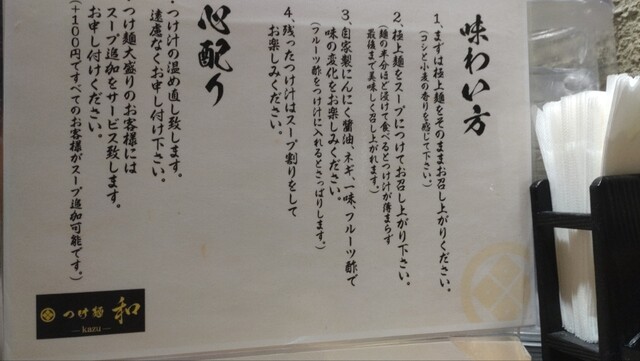 味わい方
1、まずは極上麺をそのままお召し上がりください。
(コシと小麦の香りを感じて下さい。)
2、極上麺をスープにつけてお召し上がり下さい。
(麺の半分ほど浸けて食べるとつけ汁が薄まらず
最後まで美味しく召し上がれます。)
3、自家製にんにく醤油、ネギ、一味、フルーツ酢で
味の変化をお楽しみください。
(フルーツ酢をつけ汁に入れるとさっぱりします。)
4、残ったつけ汁はスープ割りをして
お楽しみください。
心配り
・つけ汁の温め直し致します。
遠慮なくお申し付け下さい。
・つけ麺大盛りのお客様には
スープ追加をサービス致します。
お申し付けください。
(+100円ですべてのお客様がスープ追加可能です。)
つけ麺 和
― kazu ―